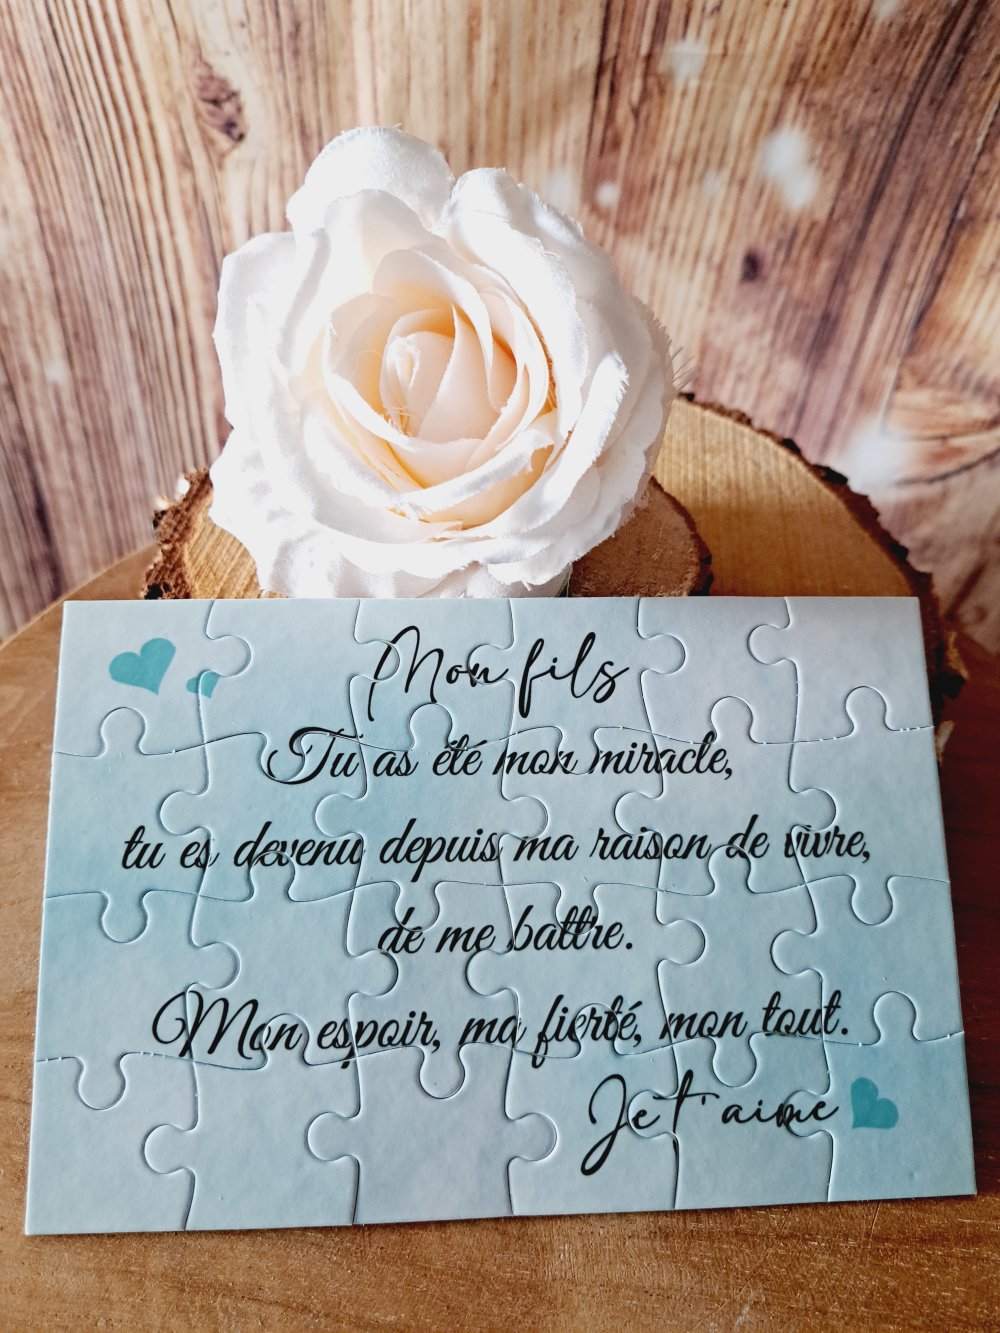 Mon fils
Tu as été mon miracle,
tu es devenu depuis ma raison de vivre,
de me battre.
Mon espoir, ma fierté, mon tout.
Je t'aime